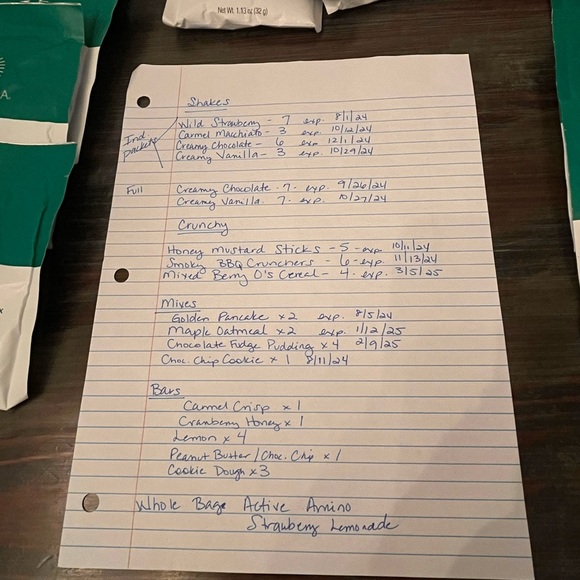 Net Wt. 1.13 oz (32 g)
A.
Shakes
Ind packets
Wild Strawberry - 7 exp. 8/1/24
Carmel Macchiato - 3 exp. 10/12/24
Creamy Chocolate - 6 exp 12/1/24
Creamy Vanilla - 3 exp. 10/29/24
Full
Creamy Chocolate - 7 - exp. 9/26/24
Creamy Vanilla. 7 - exp. 10/27/24
Crunchy
Honey Mustard Sticks - 5 - exp 10/11/24
Smoky BBQ Crunchers - 6 - exp. 11/13/24
Mixed Berry O's Cereal - 4 - exp. 3/5/25
Mixes
Golden Pancake x2 exp. 8/5/24
Maple Oatmeal x2 exp. 1/12/25
Chocolate Fudge Pudding x4 2/9/25
Choc. Chip Cookie x 1 8/11/24
Bars
Carmel Crisp x 1
Cranberry Honey x 1
Lemon x 4
Peanut Butter / Choc. Chip x 1
Cookie Dough x3
Whole Bags Active Amino
Strawberry Lemonade